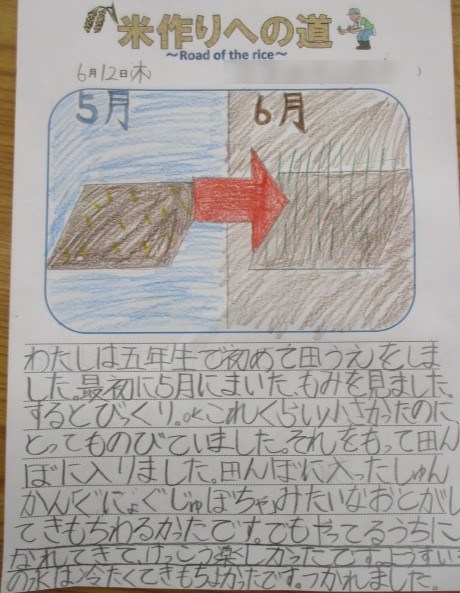 米作りへの道
～Road of the rice～
6月12日(木)
5月
6月
わたしは五年生で初めて田うえをしま
した。最初に5月にまいた、もみを見ました。
するとびっくり。これくらい小さかったのに
とってものびていました。それをもって田ん
ぼに入りました。田んぼに入ったしゅん
かん「ぐにょぐじゅぼちゃ」みたいなおとがし
てきもちわるかったです。でもやってるうちに
なれてきて、けっこう楽しかったです。ようすい
の水は冷たくてきもちよかったです。つかれました。